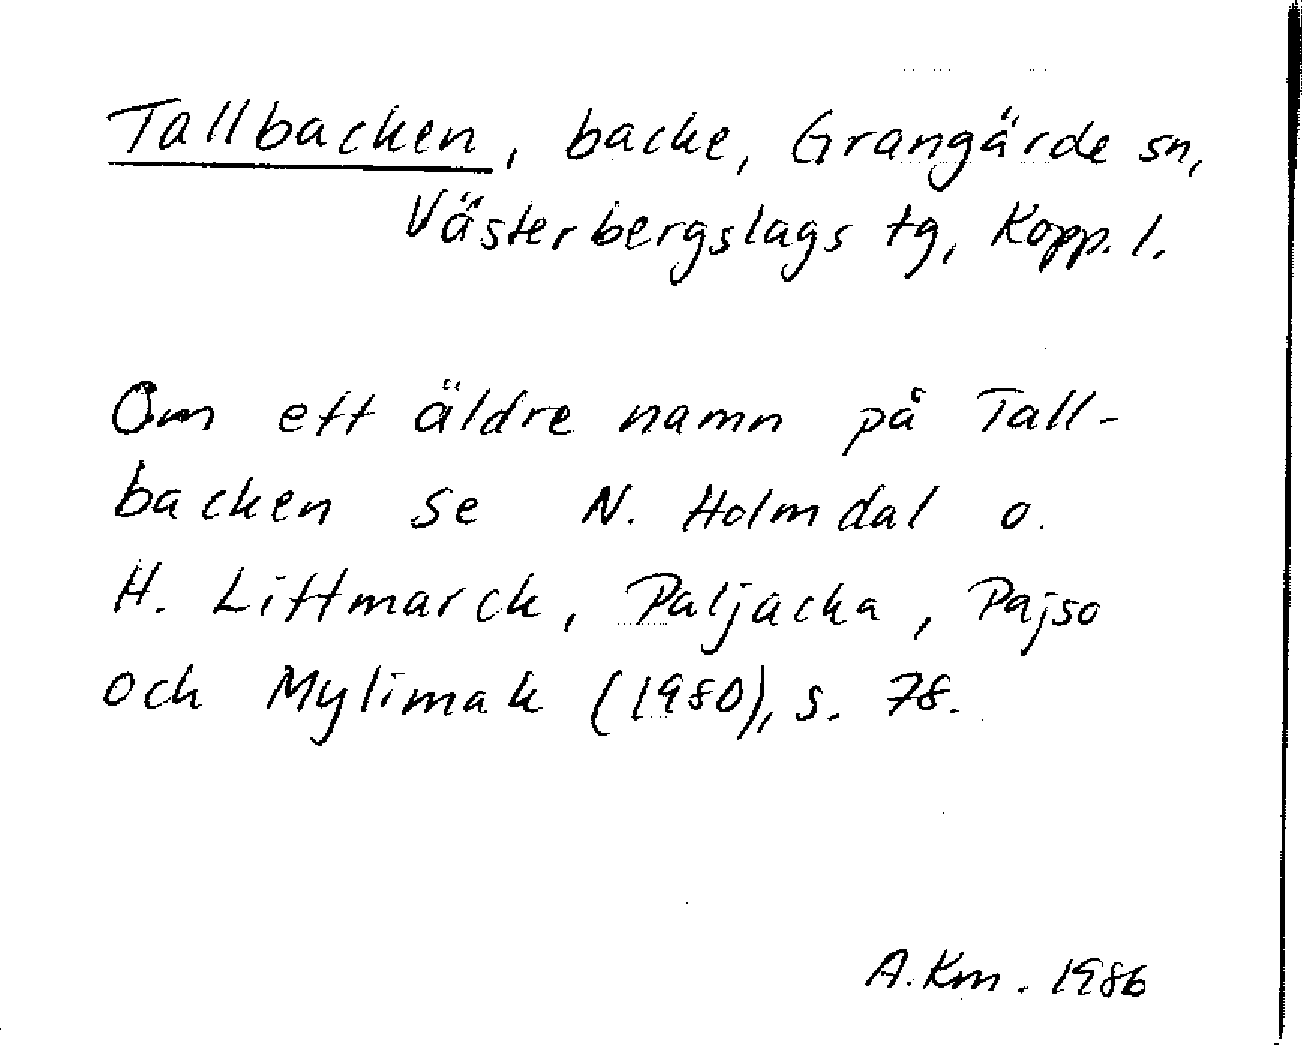 Tallbacken, backe, Grangärde sn,
Västerbergslags tg, Kopp. l.
Om ett äldre namn på Tall-
backen se N. Holmdal o.
H. Littmarck, Paljacka, Pajso
och Mylimak (1980), s. 78.
A. Km. 1986